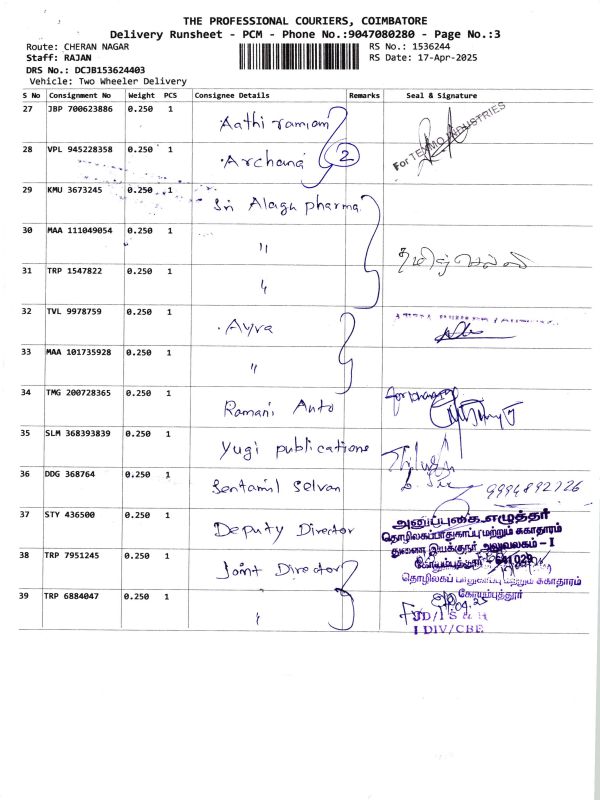 THE PROFESSIONAL COURIERS, COIMBATORE
Delivery Runsheet - PCM - Phone No.:9047080280 - Page No.:3
Route: CHERAN NAGAR
RS No.: 1536244
Staff: RAJAN
RS Date: 17-Apr-2025
DRS No.: DCJB153624403
Vehicle: Two Wheeler Delivery
S No Consignment No Weight PCS Consignee Details Remarks Seal & Signature
27 JBP 700623886 0.250 1 Aathi
For TEMMO INDUSTRIES
28 VPL 945228358 0.250 1 Archana 2
29 KMU 3673245 0.250 1 Sri Alagu pharma
30 MAA 111049054 0.250 1 "
31 TRP 1547822 0.250 1 "
32 TVL 9978759 0.250 1 Ayra
33 MAA 101735928 0.250 1 "
34 TMG 200728365 0.250 1 Ramani Auto
35 SLM 368393839 0.250 1 Yugi publications
36 DDG 368764 0.250 1 Sentamil Selvan 9994892726
37 STY 436500 0.250 1 Deputy Director
அனுப்புகை எழுத்தர்
தொழிலகப்பாதுகாப்பு மற்றும் சுகாதாரம்
துணை இயக்குநர் அலுவலகம் - I
38 TRP 7951245 0.250 1 Joint Director
641029
தொழிலகப் பாதுகாப்பு மற்றும் சுகாதாரம்
39 TRP 6884047 0.250 1 "
கோயம்புத்தூர்
JD/I S & H
I DIV/CBE